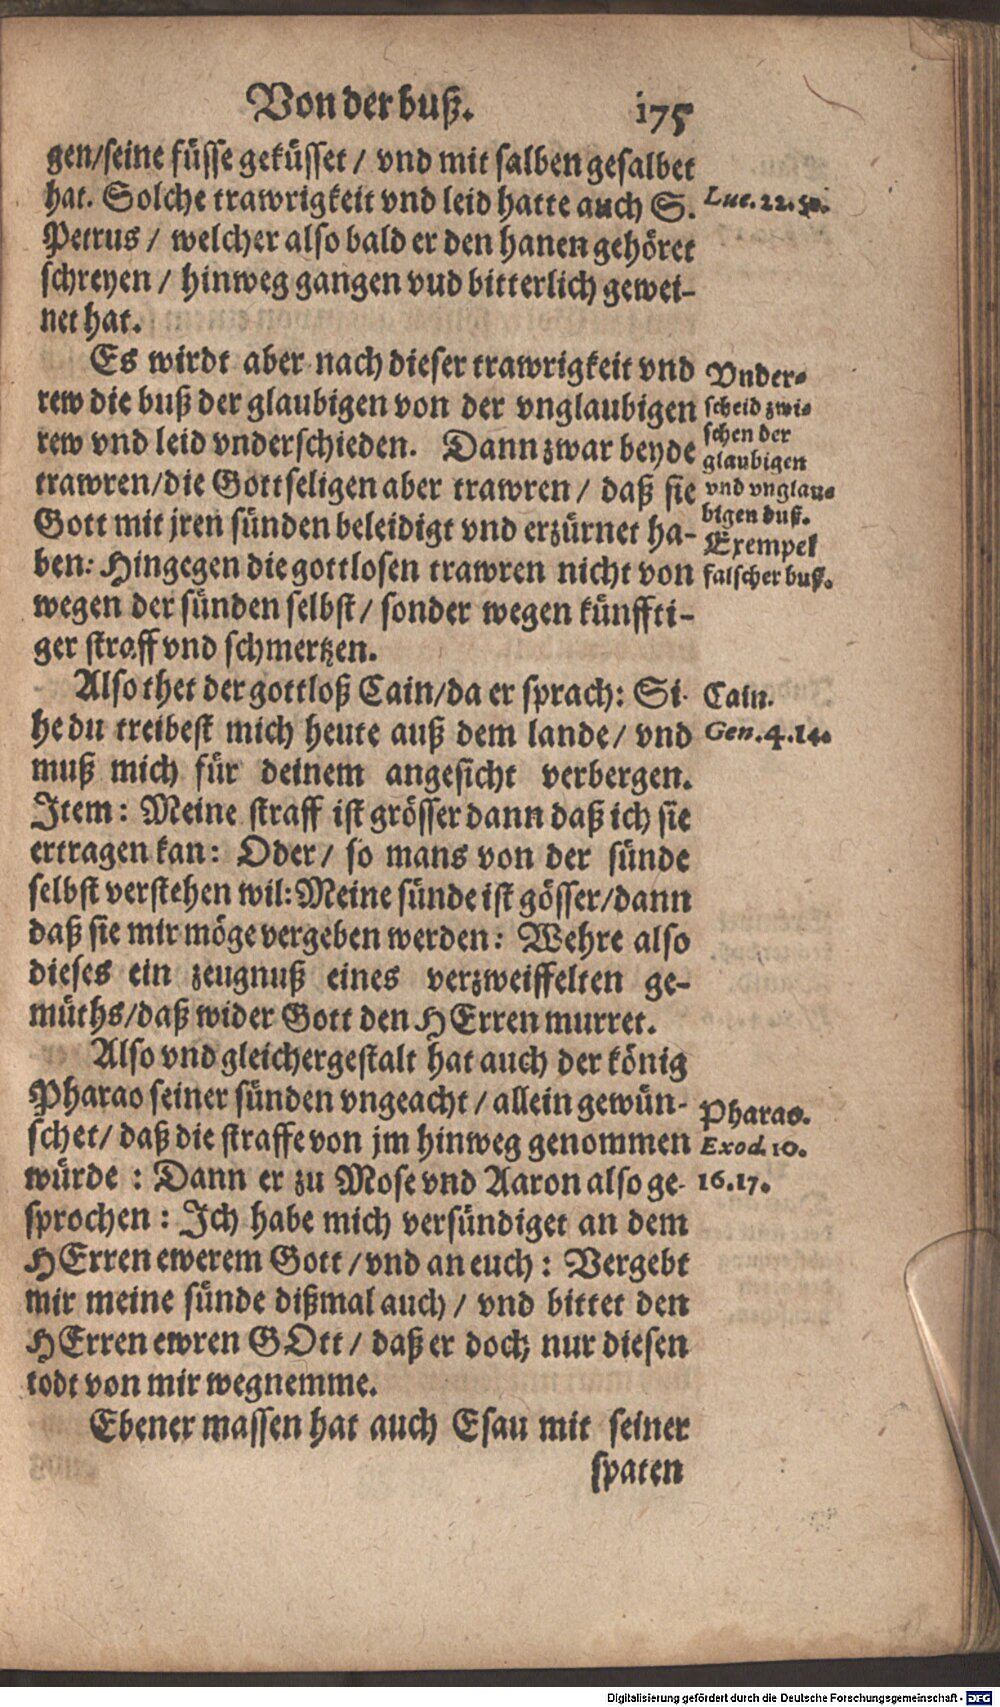 Von der buß. 175
gen/seine füsse geküsset / vnd mit salben gesalbet
hat. Solche trawrigkeit vnd leid hatte auch S.
Luc. 22.
Petrus / welcher also bald er den hanen gehöret
schreyen / hinweg gangen vud bitterlich gewei-
net hat.
Es wirdt aber nach dieser trawrigkeit vnd
rew die buß der glaubigen von der vnglaubigen
rew vnd leid vnderschieden. Dann zwar beyde
trawren/die Gottseligen aber trawren / daß sie
Gott mit jren sünden beleidigt vnd erzürnet ha-
ben: Hingegen die gottlosen trawren nicht von
wegen der sünden selbst / sonder wegen künffti-
ger straff vnd schmertzen.
Vnder-
scheid zwi-
schen der
glaubigen
vnd vnglau-
bigen buß.
Exempel
falscher buß.
Also thet der gottloß Cain/da er sprach: Si-
he du treibest mich heute auß dem lande / vnd
muß mich für deinem angesicht verbergen.
Item: Meine straff ist grösser dann daß ich sie
ertragen kan: Oder / so mans von der sünde
selbst verstehen wil: Meine sünde ist gösser/dann
daß sie mir möge vergeben werden: Wehre also
dieses ein zeugnuß eines verzweiffelten ge-
müths/daß wider Gott den HErren murret.
Cain.
Gen. 4. 14.
Also vnd gleichergestalt hat auch der könig
Pharao seiner sünden vngeacht / allein gewün-
schet / daß die straffe von jm hinweg genommen
würde : Dann er zu Mose vnd Aaron also ge-
sprochen : Ich habe mich versündiget an dem
HErren ewerem Gott / vnd an euch : Vergebt
mir meine sünde dißmal auch / vnd bittet den
HErren ewren GOtt / daß er doch nur diesen
todt von mir wegnemme.
Pharao.
Exod. 10.
16. 17.
Ebener massen hat auch Esau mit seiner
spaten
Digitalisierung gefördert durch die Deutsche Forschungsgemeinschaft - DFG